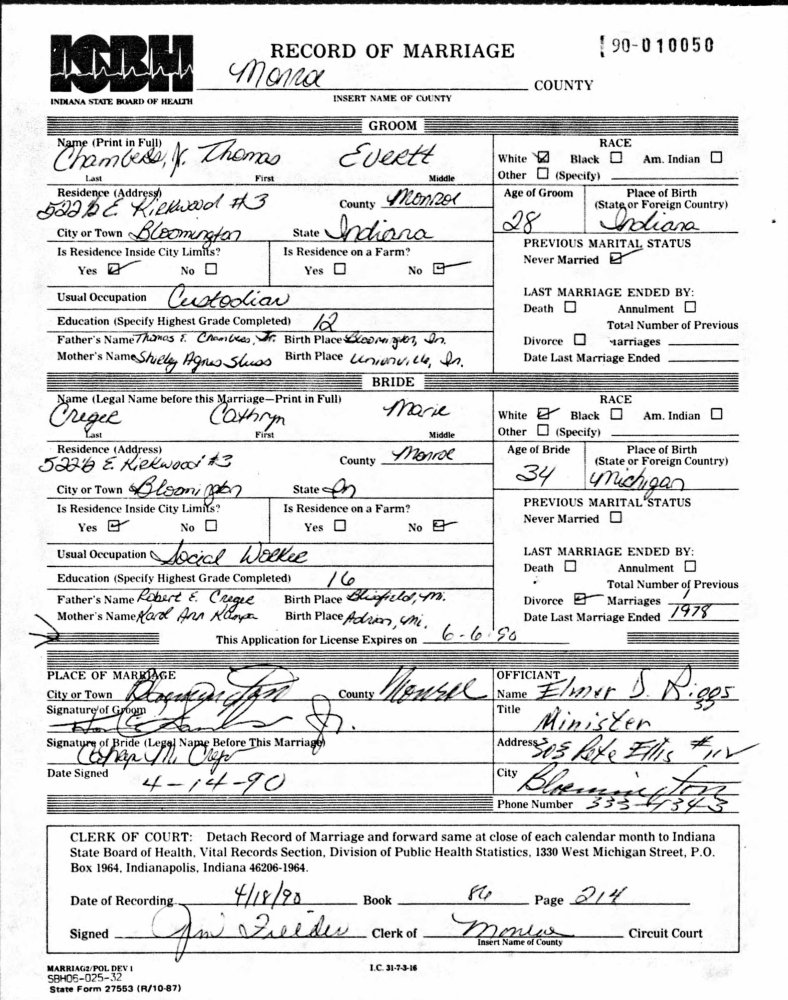 ISBH
INDIANA STATE BOARD OF HEALTH
RECORD OF MARRIAGE
90-010050
Monroe COUNTY
INSERT NAME OF COUNTY
GROOM
Name (Print in Full)
Chambers, Jr. Thomas Everett
Last First Middle
RACE
White ☑ Black ☐ Am. Indian ☐
Other ☐ (Specify)
Residence (Address)
522 ½ E. Kirkwood #3 County Monroe
City or Town Bloomington State Indiana
Age of Groom 28
Place of Birth (State or Foreign Country) Indiana
Is Residence Inside City Limits? Yes ☑ No ☐
Is Residence on a Farm? Yes ☐ No ☑
PREVIOUS MARITAL STATUS
Never Married ☑
Usual Occupation Custodian
LAST MARRIAGE ENDED BY:
Death ☐ Annulment ☐
Education (Specify Highest Grade Completed) 12
Total Number of Previous
Father's Name Thomas E. Chambers, Sr. Birth Place Bloomington, In.
Divorce ☐ Marriages
Mother's Name Shirley Agnes Sluss Birth Place Unionville, In.
Date Last Marriage Ended
BRIDE
Name (Legal Name before this Marriage—Print in Full)
Creger Cathryn Marie
Last First Middle
RACE
White ☑ Black ☐ Am. Indian ☐
Other ☐ (Specify)
Residence (Address)
522 ½ E. Kirkwood #3 County Monroe
City or Town Bloomington State In
Age of Bride 34
Place of Birth (State or Foreign Country) Michigan
Is Residence Inside City Limits? Yes ☑ No ☐
Is Residence on a Farm? Yes ☐ No ☑
PREVIOUS MARITAL STATUS
Never Married ☐
Usual Occupation Social Worker
LAST MARRIAGE ENDED BY:
Death ☐ Annulment ☐
Education (Specify Highest Grade Completed) 16
Total Number of Previous
Father's Name Robert E. Creger Birth Place Mi.
Divorce ☑ Marriages 1
Mother's Name Ann Birth Place Adrian, Mi.
Date Last Marriage Ended 1978
This Application for License Expires on 6-6-90
PLACE OF MARRIAGE
City or Town Bloomington County Monroe
OFFICIANT
Name Elmer D. Riggs
Signature of Groom
Jr.
Title
Minister
Signature of Bride (Legal Name Before This Marriage)
M. Creger
Address 505 Pete Ellis
Date Signed
4-14-90
City Bloomington
Phone Number 333-4343
CLERK OF COURT: Detach Record of Marriage and forward same at close of each calendar month to Indiana
State Board of Health, Vital Records Section, Division of Public Health Statistics, 1330 West Michigan Street, P.O.
Box 1964, Indianapolis, Indiana 46206-1964.
Date of Recording 4/18/90 Book 86 Page 214
Signed Jim Fielder Clerk of Monroe Circuit Court
Insert Name of County
MARRIAG2/POL DEV 1 I.C. 31-7-3-16
SBH06-025-32
State Form 27553 (R/10-87)